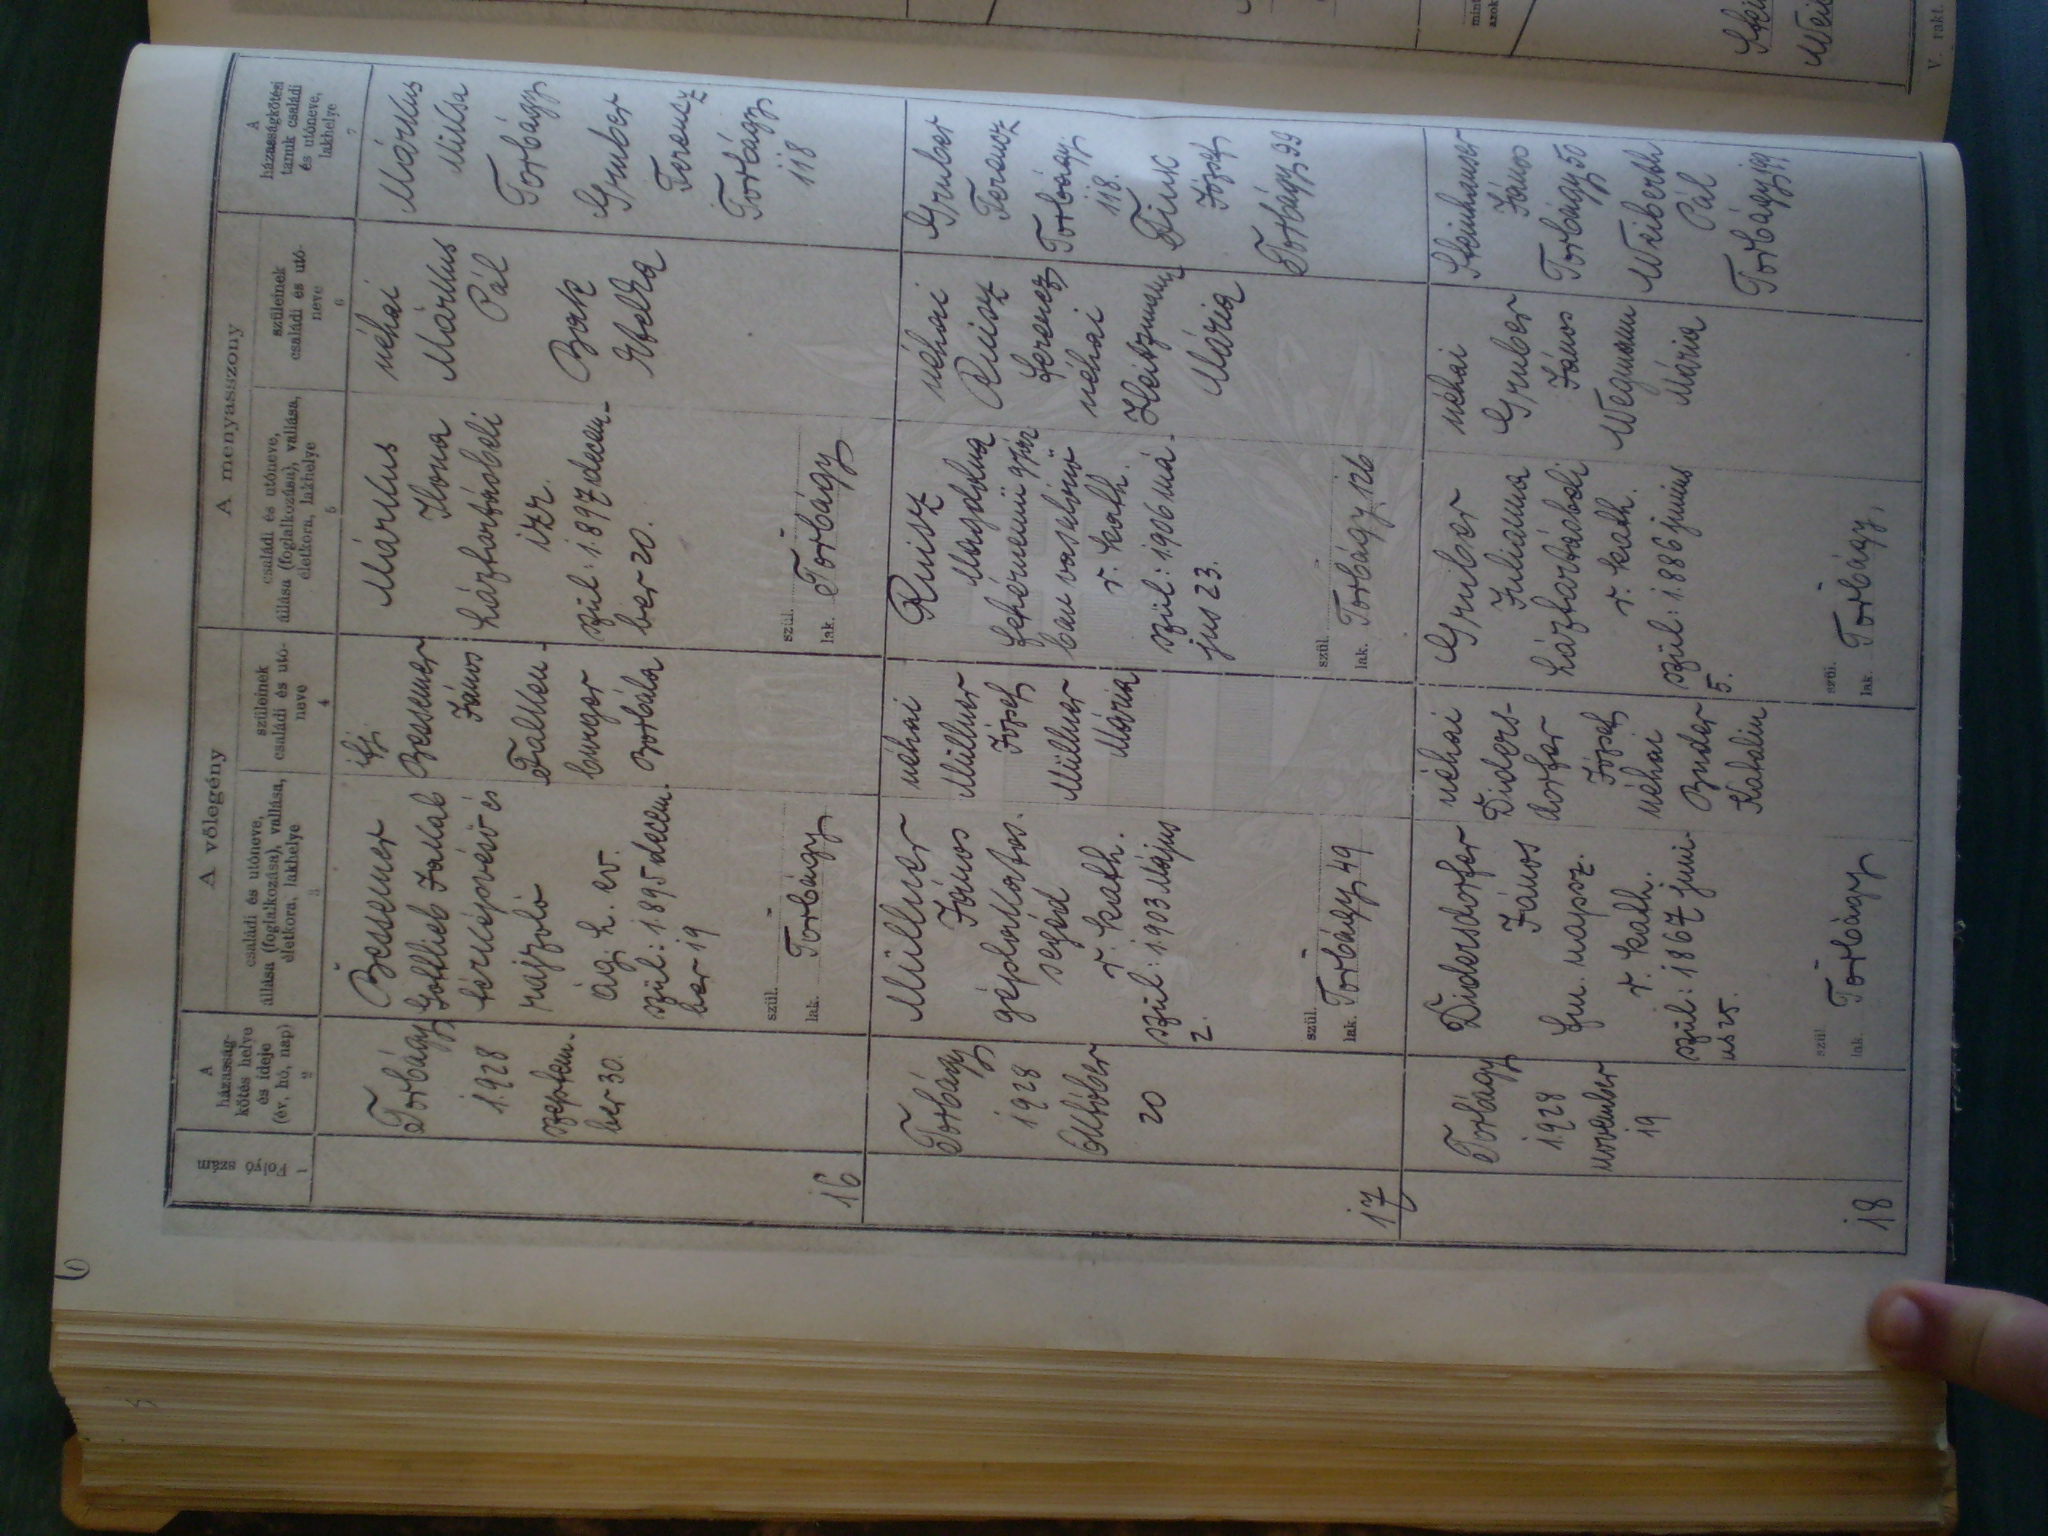 6
A vőlegény
A menyasszony
Folyó-
szám
1
A
házasság-
kötés helye
és ideje
(év, hó, nap)
2
családi és utóneve,
állása (foglalkozása), vallása,
életkora, lakhelye
3
szüleinek
családi és utó-
neve
4
családi és utóneve,
állása (foglalkozása), vallása,
életkora, lakhelye
5
szüleinek
családi és utó-
neve
6
A
házasságkötési
tanuk családi
és utóneve,
lakhelye
7
16
Torbágy
1928
szeptem-
ber 30.
Bessemer
Gottlieb Jakab
térképvéső és
rajzoló
ág. h. ev.
szül: 1895 decem-
ber 19
szül.
lak. Torbágy
ifj.
Bessemer
János
Falken-
burger
Borbála
Márkus
Ilona
háztartásbeli
izr.
szül: 1897 decem-
ber 20.
szül.
lak. Torbágy
néhai
Márkus
Pál
Bak
Etelka
Márkus
Miksa
Torbágy
Gruber
Ferencz
Torbágy
118
17
Torbágy
1928
Október
20
Müllner
János
géplakatos
segéd
r. kath.
szül: 1903 Május
2.
szül.
lak. Torbágy 49
néhai
Müllner
József
Müllner
Mária
Ruisz
Magdolna
fehérnemü gyár
ban vasalónő
r. kath.
szül: 1906 má-
jus 23.
szül.
lak. Torbágy 126
néhai
Ruisz
ferencz
néhai
Heitzmann
Mária
Gruber
Ferencz
Torbágy
118.
Fink
József
Torbágy 99
18
Torbágy
1928
november
19
Didersdorfer
János
fm. napsz.
r. kath.
szül: 1867 juni-
us 25.
szül.
lak. Torbágy
néhai
Diders-
dorfer
József
néhai
Binder
Katalin
Gruber
Julianna
háztartásbeli
r. kath.
szül: 1886 junius
5.
szül.
lak. Torbágy.
néhai
Gruber
János
Wegmann
Mária
Steinhauser
János
Torbágy 50
Weiberth
Pál
Torbágy 199.
V. rakt.